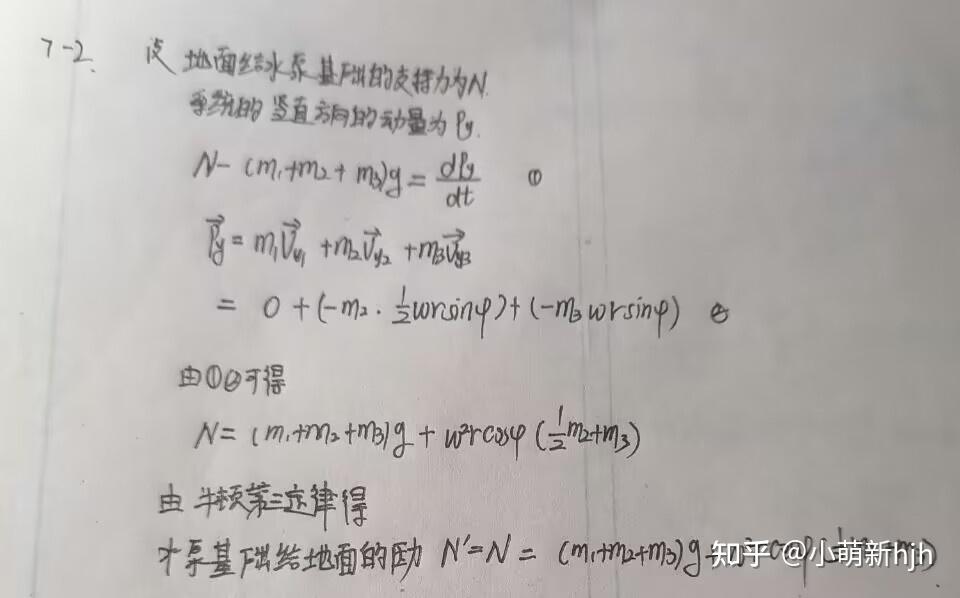 7-2. 设 地面给水泵基础的支持力为N.
系统的竖直方向的动量为Py.
N-(m₁+m₂+m₃)g = dPy/dt ①
P⃗y = m₁v⃗y₁ + m₂v⃗y₂ + m₃v⃗y₃
= 0 + (-m₂ · 1/2 ωr sinφ) + (-m₃ ωr sinφ) ②
由①②可得
N = (m₁+m₂+m₃)g + ω²r cosφ (1/2 m₂+m₃)
由牛顿第三定律得
水泵基础给地面的压力 N'=N = (m₁+m₂+m₃)g
知乎 @小萌新hjh